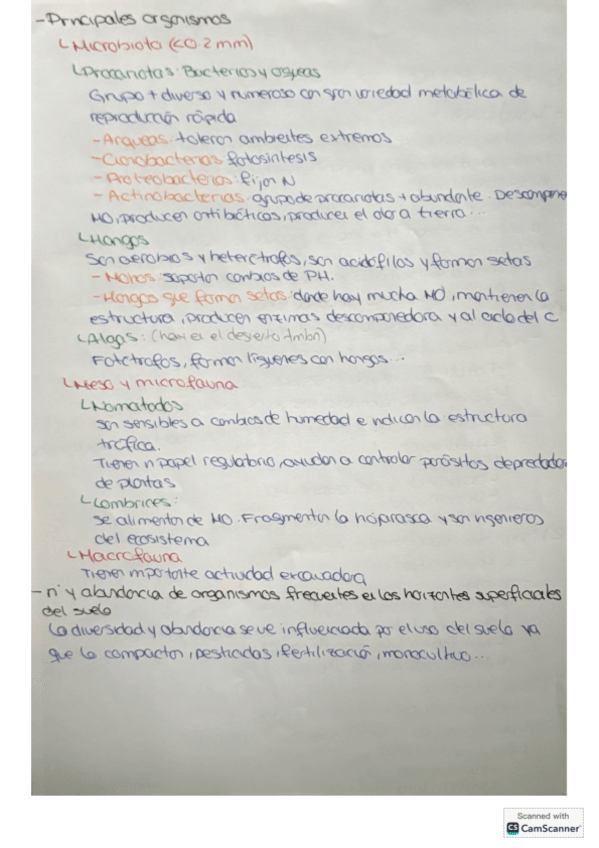 - Principales organismos
Microbiota (<0.2mm)
Procariotas: Bacterias y arqueas
Grupo + diverso y numeroso con gran variedad metabólica de
reproducción rápida
- Arqueas: toleran ambientes extremos
- Cianobacterias: fotosíntesis
- Proteobacterias: fijan N
- Actinobacterias: grupo de procariotas + abundante. Descompone
MO, producen antibióticos, producen el olor a tierra...
Hongos
Son aerobios y heterótrofos, son acidófilos y forman setas
- Mohos: soportan cambios de PH.
- Hongos que forman setas: donde hay mucha MO, mantienen la
estructura, producen enzimas descomponedora y al ciclo del C
Algas: (hay en el desierto tmbn)
Fotótrofos, forman líquenes con hongos...
Meso y microfauna
Nematodos
Son sensibles a cambios de humedad e indican la estructura
trófica.
Tienen n papel regulatorio, ayudan a controlar parásitos depredador
de plantas
Lombrices:
Se alimentan de MO. Fragmentan la hojarasca y son ingenieros
del ecosistema
Macrofauna
Tienen importante actividad excavadora
- nº y abundancia de organismos frecuentes en los horizontes superficiales
del suelo
La diversidad y abundancia se ve influenciada por el uso del suelo ya
que lo compactan, pesticidas, fertilización, monocultivo...
Scanned with
CS CamScanner